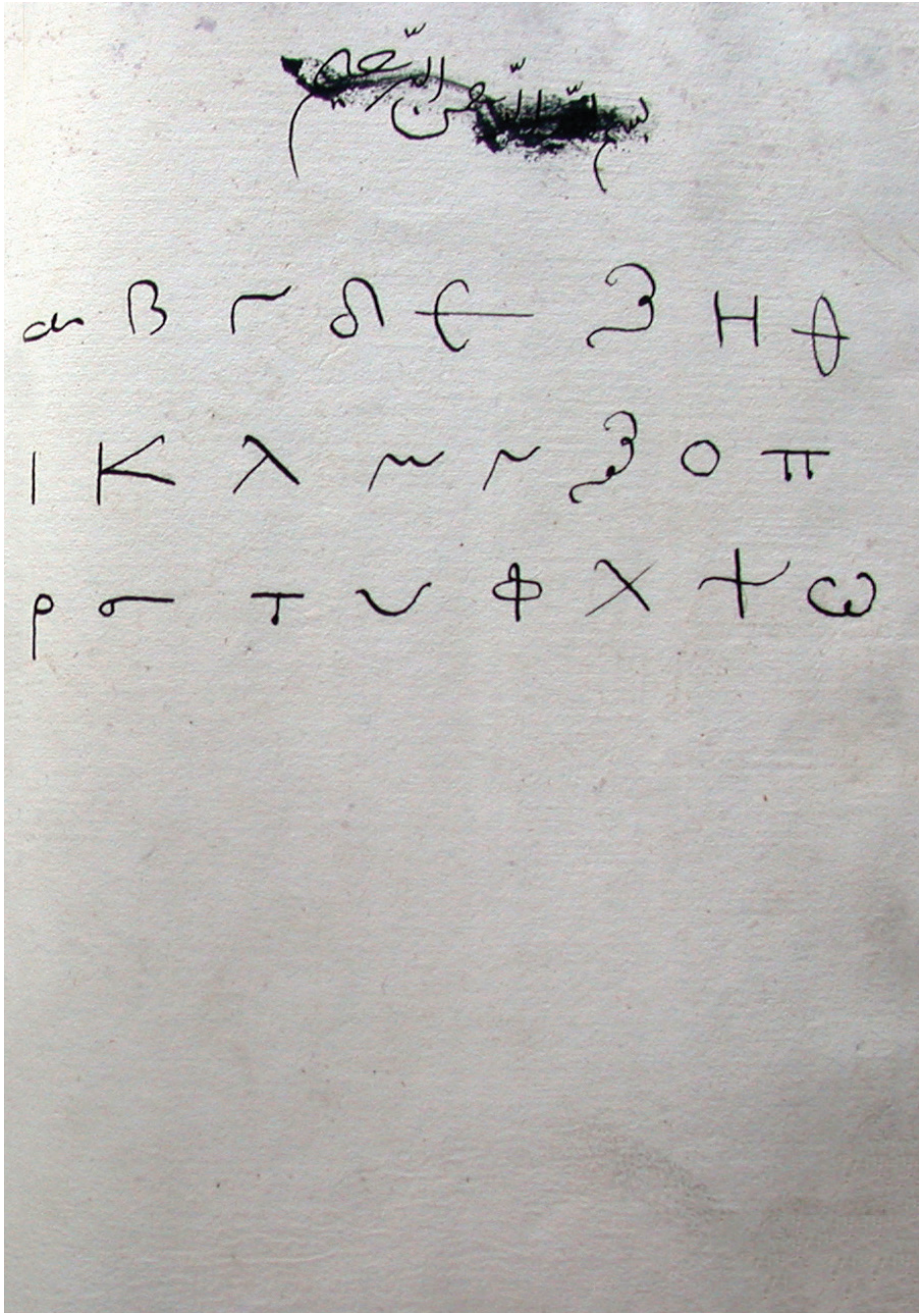 بسم الله الرّحمن الرّحيم
α β γ δ ε ζ η θ
ι κ λ μ ν ξ ο π
ρ σ τ υ φ χ ψ ω